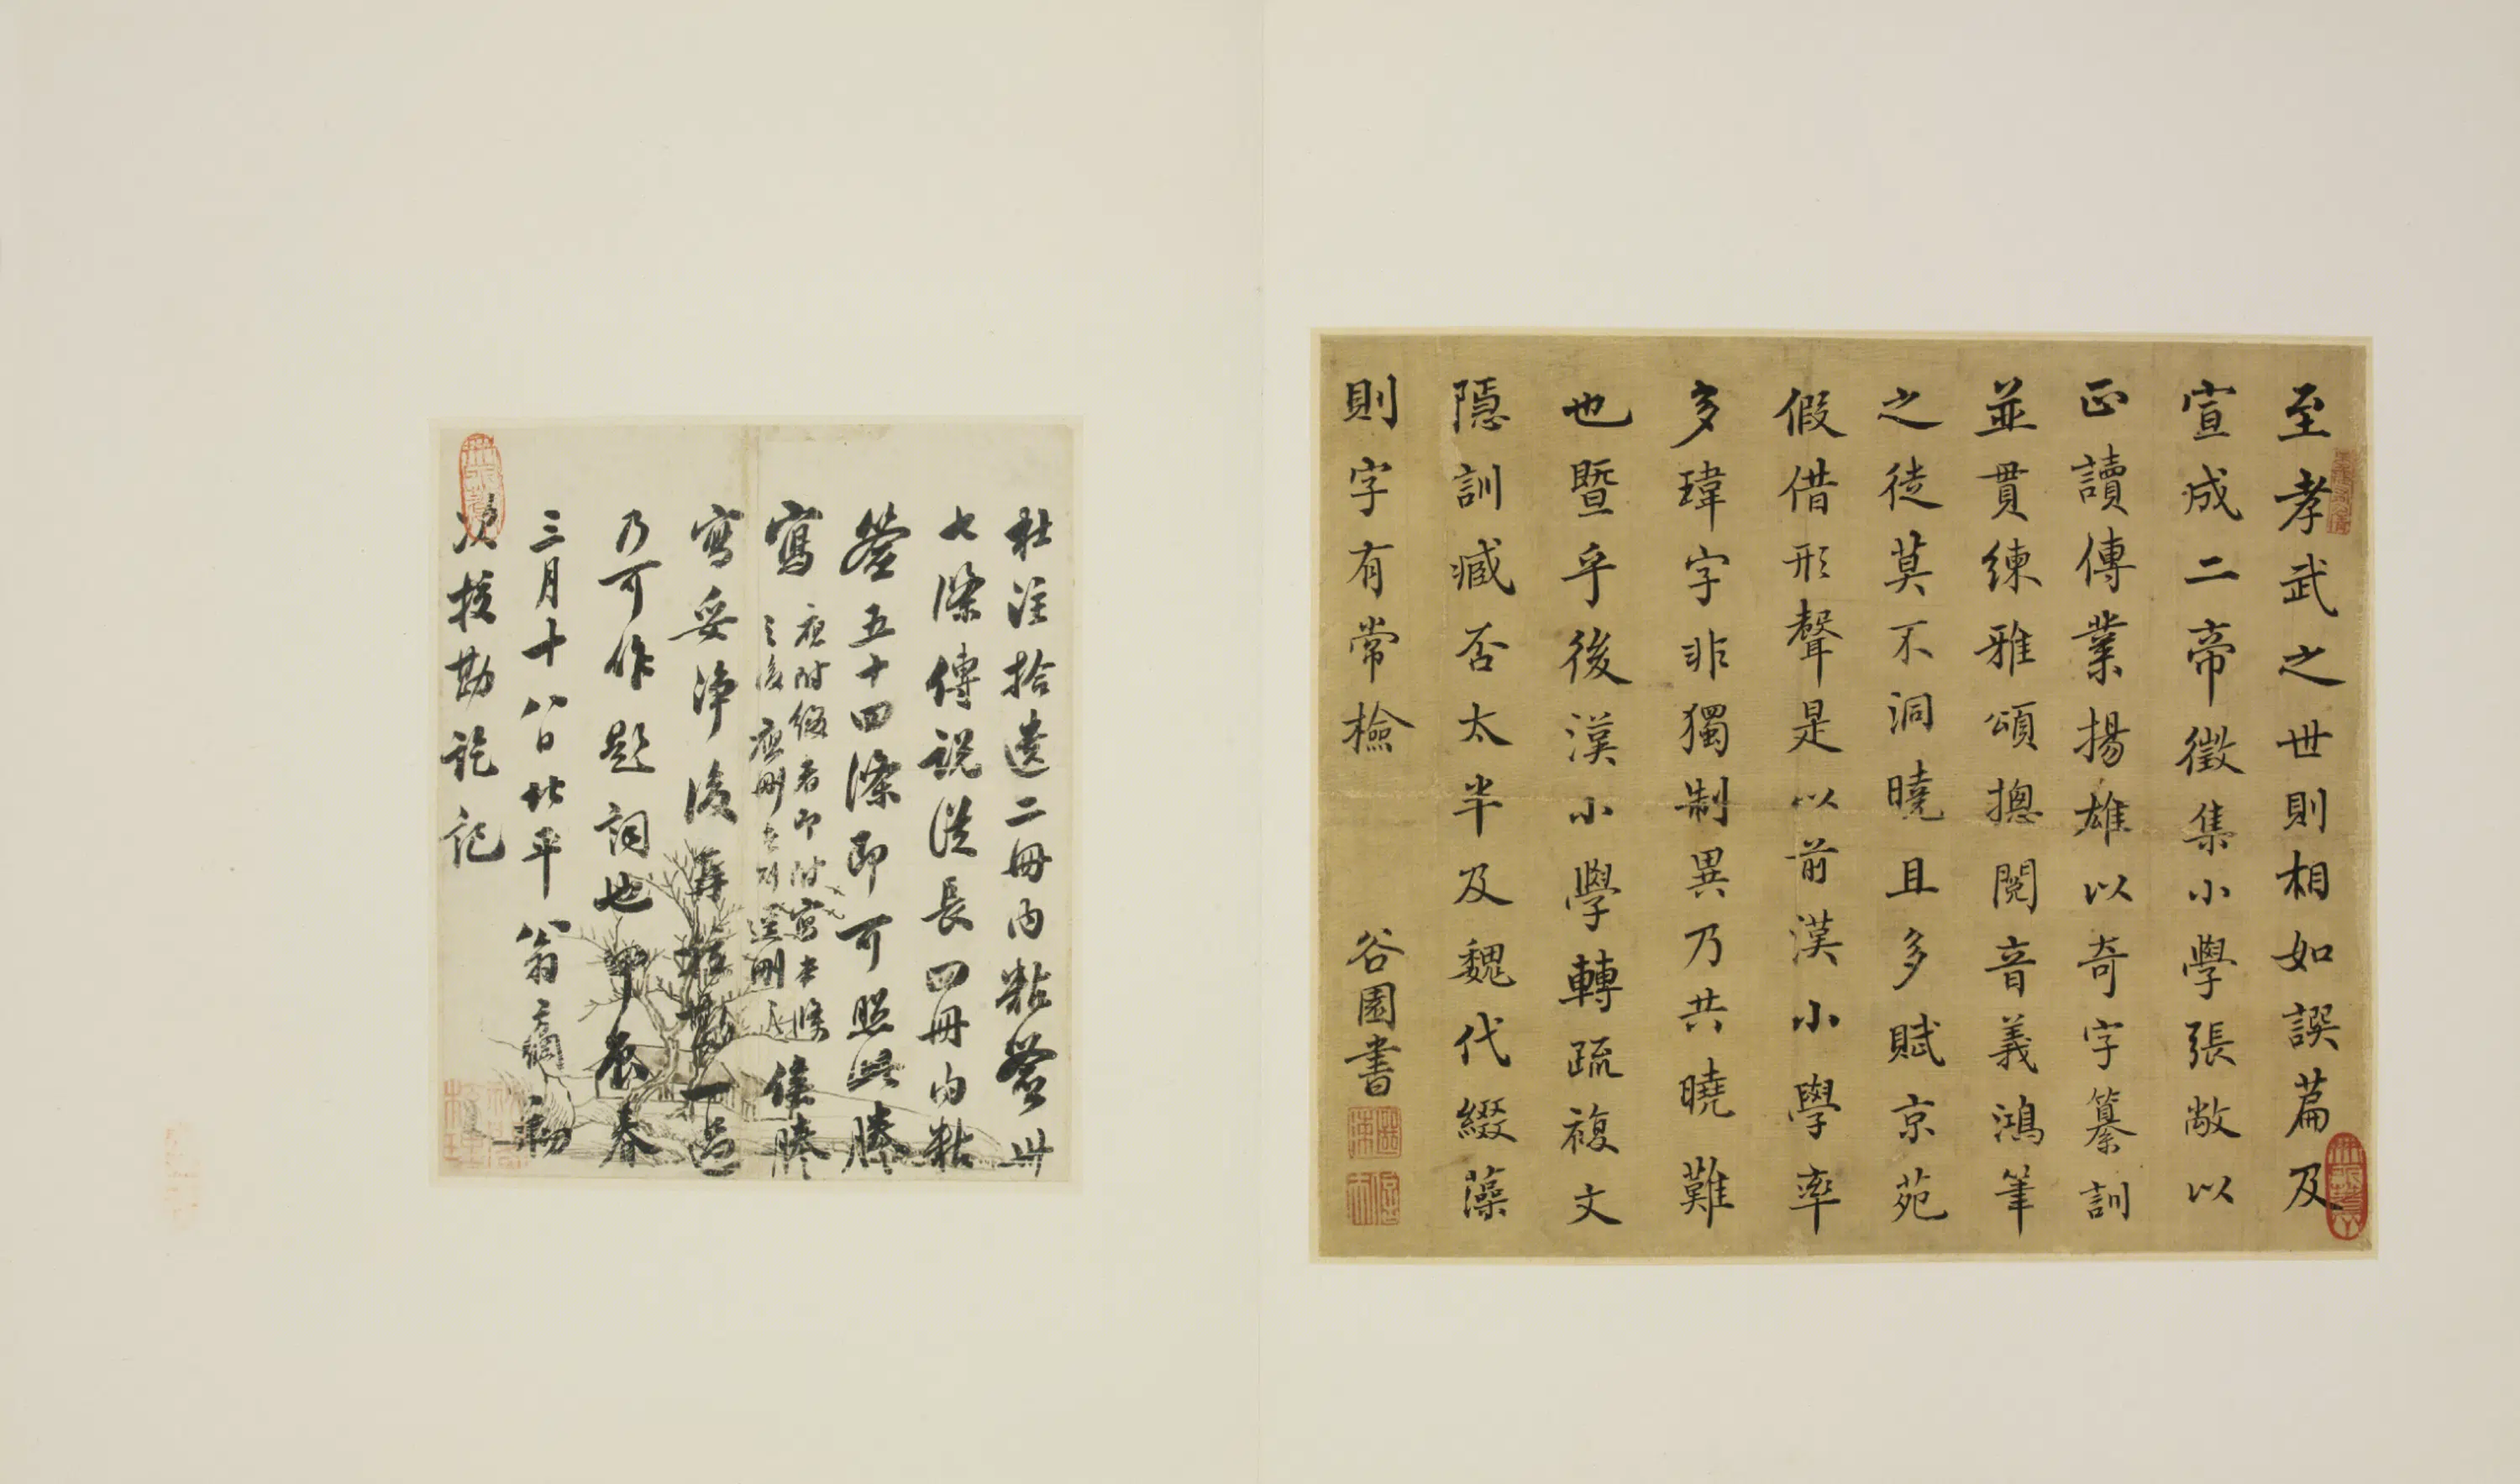 至孝武之世則相如譔篇及
宣成二帝徵集小學張敞以
正讀傳業揚雄以奇字纂訓
並貫練雅頌摠閱音義鴻筆
之徒莫不洞曉且多賦京苑
假借形聲是以前漢小學率
多瑋字非獨制異乃共曉難
也暨乎後漢小學轉疏複文
隱訓臧否太半及魏代綴藻
則字有常檢
谷園書
杜注拾遺二冊內粘簽卅
七條傳說從長四冊內粘
簽五十四條即可照此謄
寫
應附綴者即附寫本條
之後應刪者則逕刪之
俟謄
寫妥淨後再校勘一過
乃可作題詞也甲辰春
三月十八日北平翁方綱初
次校勘訖記